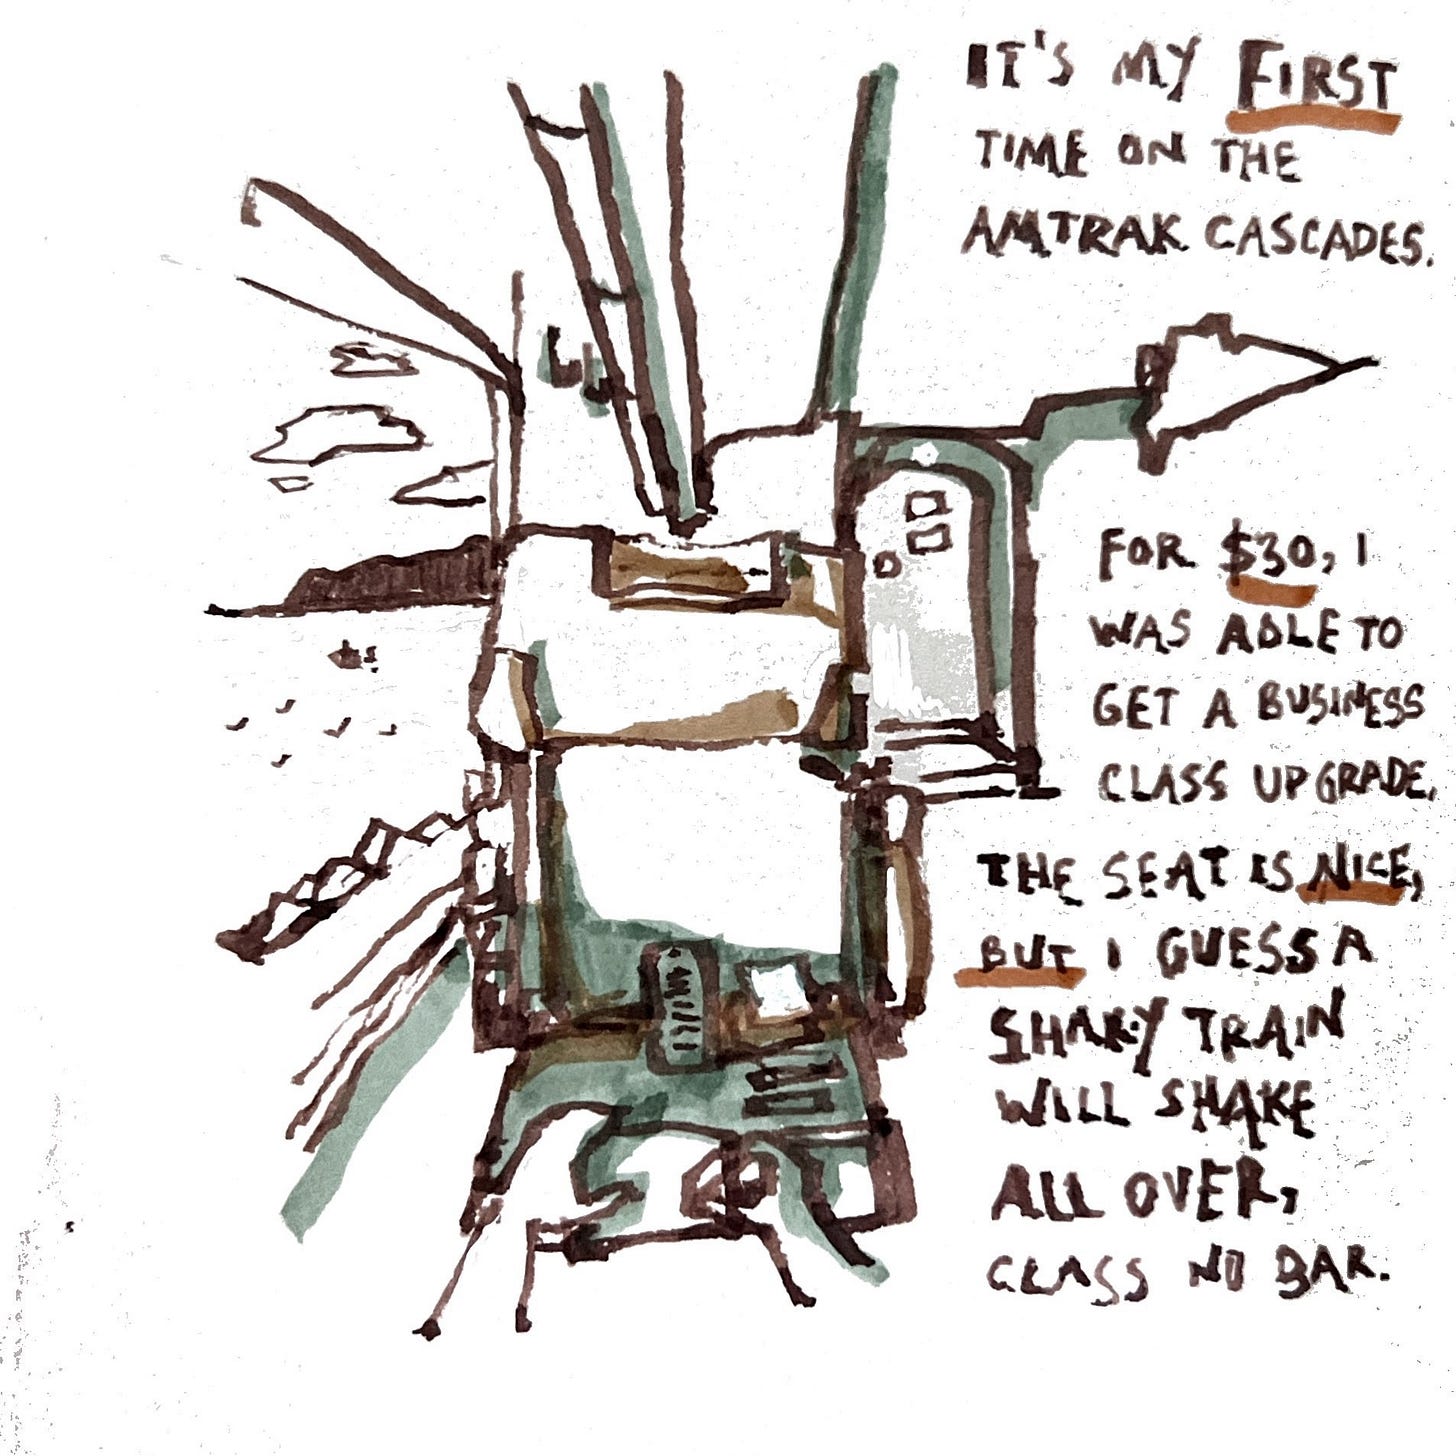 IT'S MY FIRST
TIME ON THE
AMTRAK CASCADES.
FOR $30, I
WAS ABLE TO
GET A BUSINESS
CLASS UPGRADE.
THE SEAT IS NICE,
BUT I GUESS A
SHAKY TRAIN
WILL SHAKE
ALL OVER,
CLASS NO BAR.